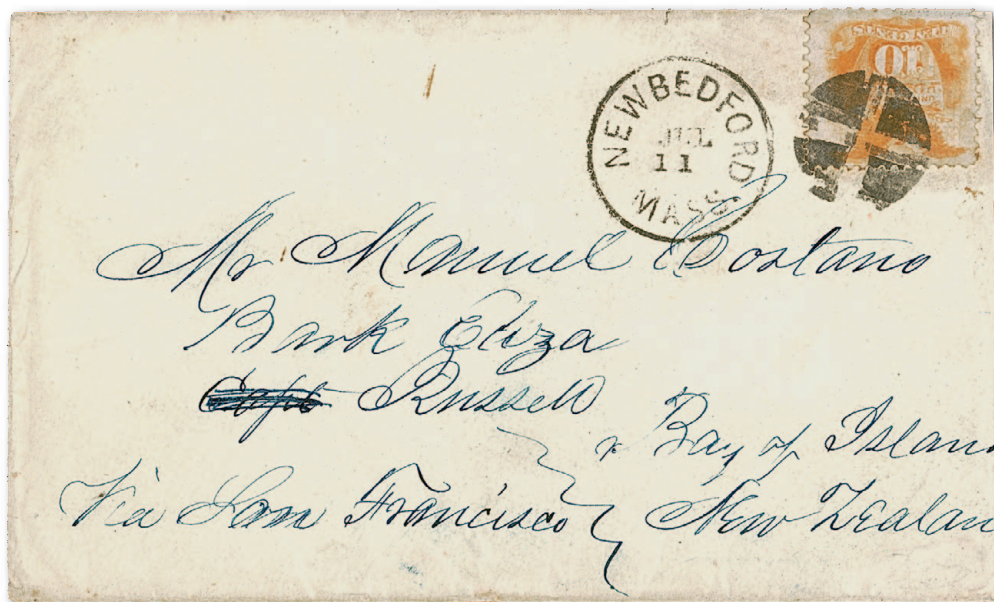 TEN CENTS
10
NEW BEDFORD
JUL
11
MASS.
Mr Manuel Costano
Bark Eliza
Capt Russell
Bay of Islan
Via San Francisco New Zealan